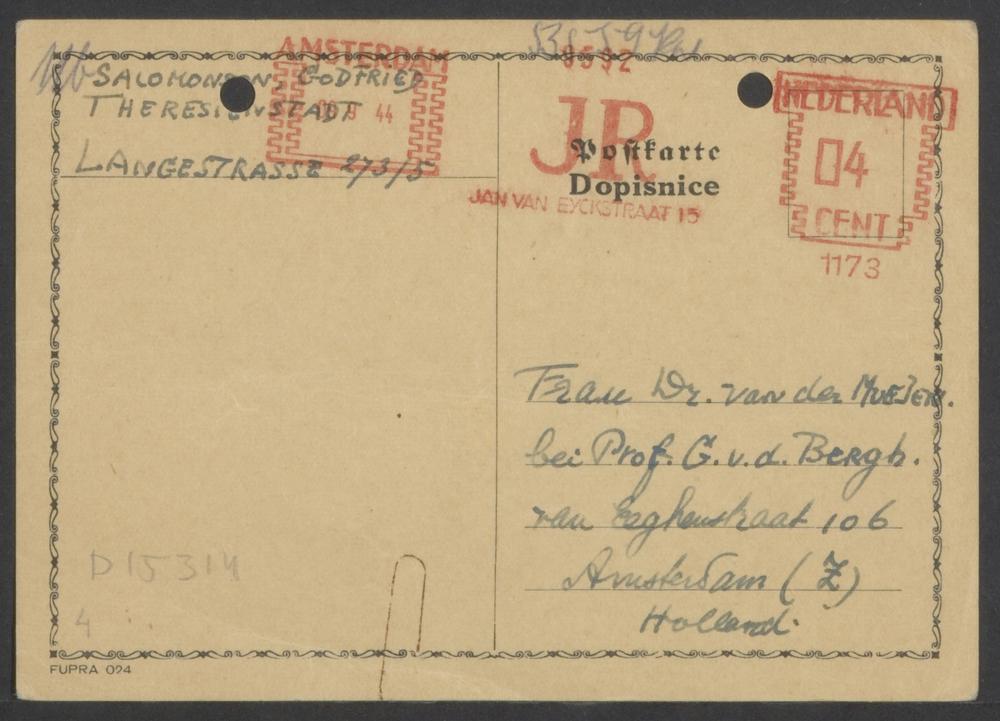 SALOMONSON, GODFRIED
THERESIENSTADT
LANGESTRASSE 273/5
AMSTERDAM
44
JR
JAN VAN EYCKSTRAAT 15
Postkarte
Dopisnice
NEDERLAND
04
CENT
1173
Frau Dr. van der
bei Prof. G. v. d. Bergh.
van Eeghenstraat 106
Amsterdam (Z)
Holland.
D 15314
4
FUPRA 024